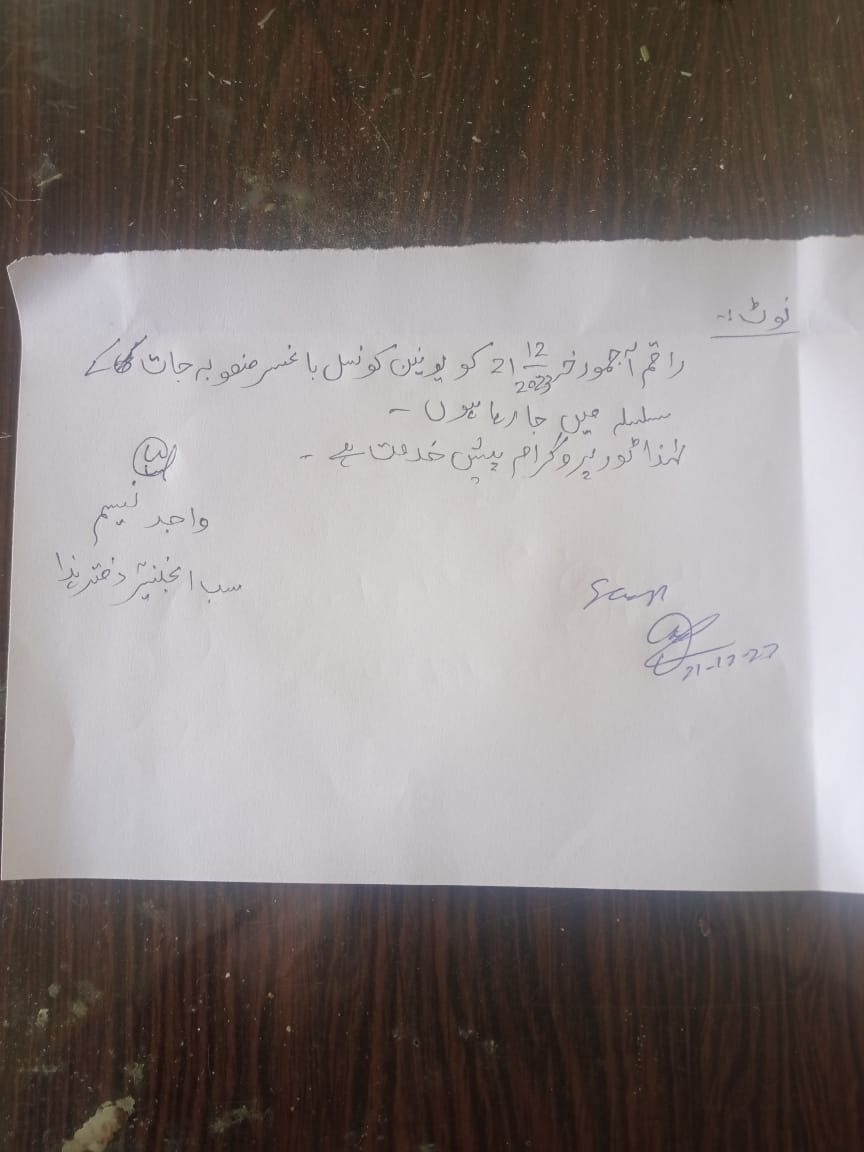 نوٹ :-
راقم آج مورخہ 21 12/2023 کو یونین کونسل باغسر منصوبہ جات کے
سلسلہ میں جا رہا ہوں -
لہٰذا ٹور پروگرام پیش خدمت ہے -
واجد نسیم
سب انجنیئر دفتر ہذا
Seen
21-12-23